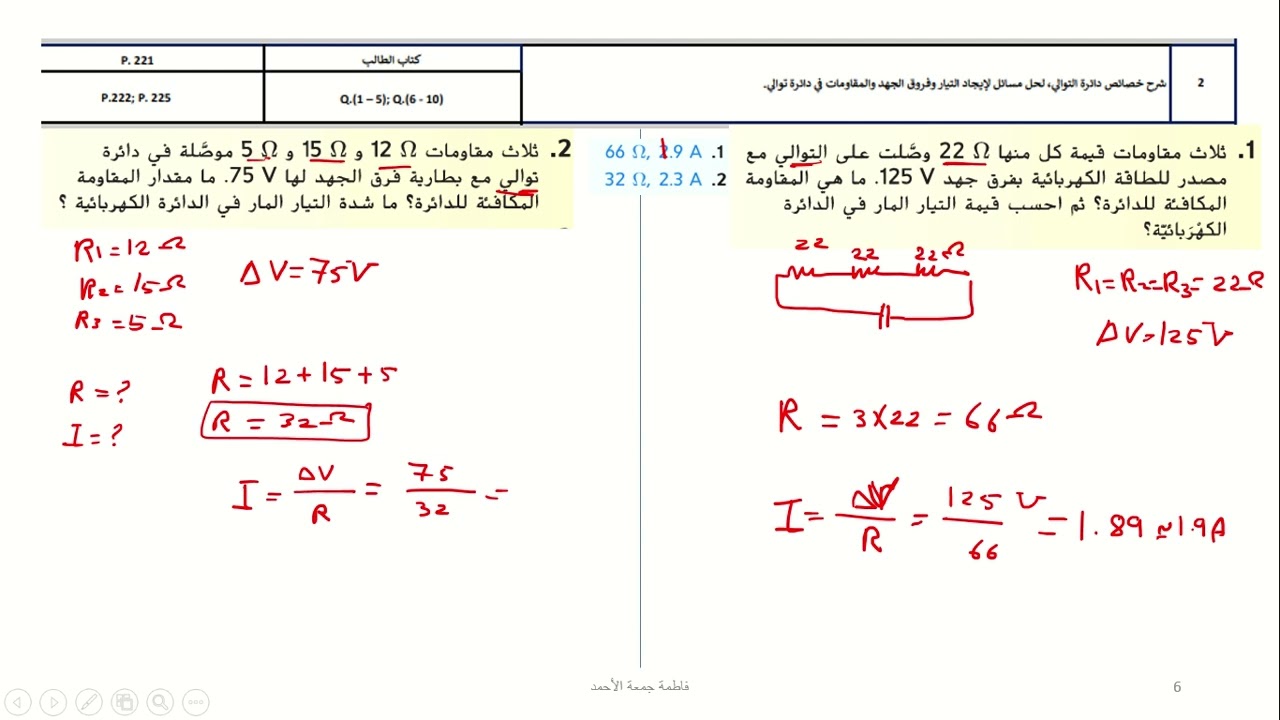 2
شرح خصائص دائرة التوالي، لحل مسائل لإيجاد التيار وفروق الجهد والمقاومات في دائرة توالي.
كتاب الطالب
P. 221
Q.(1 – 5); Q.(6 - 10)
P.222; P. 225
1. ثلاث مقاومات قيمة كل منها 22 Ω وصَّلت على التوالي مع
مصدر للطاقة الكهربائية بفرق جهد 125 V. ما هي المقاومة
المكافئة للدائرة؟ ثم احسب قيمة التيار المار في الدائرة
الكهْرَبائيّة؟
22 22 22Ω
R1=R2=R3=22Ω
ΔV=125V
R = 3×22 = 66Ω
I = ΔV/R = 125 V/66 = 1.89 ≈ 1.9A
1. 66 Ω, 1.9 A
2. 32 Ω, 2.3 A
2. ثلاث مقاومات 12 Ω و 15 Ω و 5 Ω موصَّلة في دائرة
توالي مع بطارية فرق الجهد لها 75 V. ما مقدار المقاومة
المكافئة للدائرة؟ ما شدة التيار المار في الدائرة الكهربائية ؟
R1=12Ω
R2=15Ω
R3=5Ω
ΔV=75V
R=?
I=?
R=12+15+5
R=32Ω
I = ΔV/R = 75/32 =
فاطمة جمعة الأحمد
6